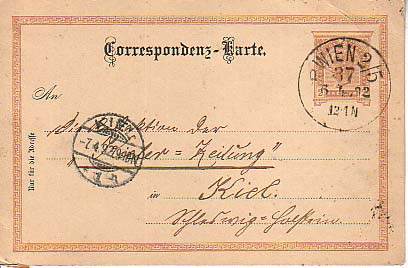 Correspondenz-Karte.
WIEN 2/5
37
12·1N
An
die Redaktion der
Zeitung"
in
Kiel.
Schleswig=Holstein
Nur für die Adresse
KIEL